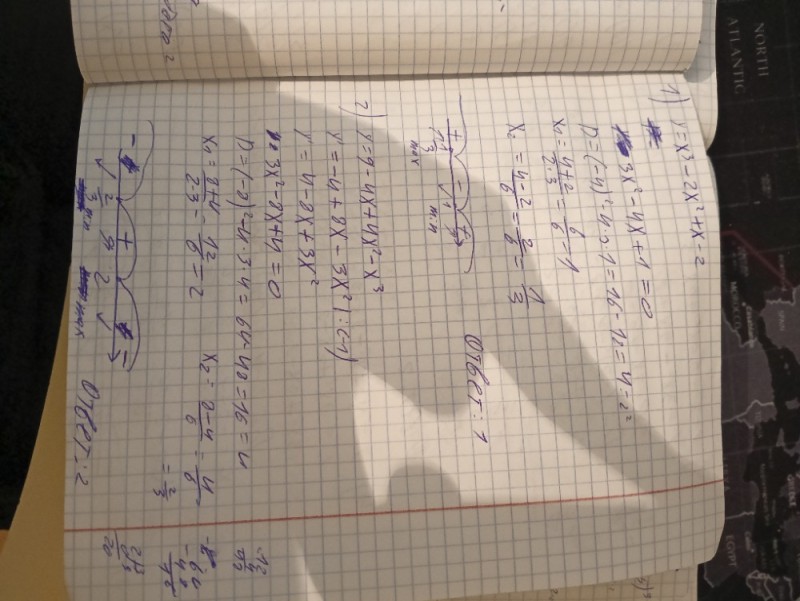 1) y = x³ - 2x² + x - 2
3x² - 4x + 1 = 0
D = (-4)² - 4·3·1 = 16 - 12 = 4 = 2²
x₁ = 4+2/2·3 = 6/6 = 1
x₂ = 4-2/6 = 2/6 = 1/3
+ - +
1/3 1
max min
Ответ: 1
2) y = 9 - 4x + 4x² - x³
y' = -4 + 8x - 3x² | :(-1)
y' = 4 - 8x + 3x²
3x² - 8x + 4 = 0
D = (-8)² - 4·3·4 = 64 - 48 = 16 = 4
x₁ = 8+4/2·3 = 12/6 = 2
x₂ = 8-4/6 = 4/6 = 2/3
- + -
2/3 2
min max
Ответ: 2
NORTH
ATLANTIC
MOROCCO
EGYPT